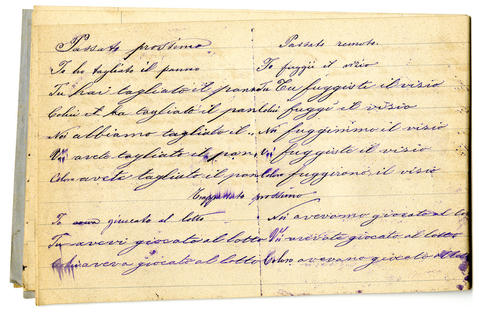 Passato prossimo
Io ho tagliato il panno
Tu hai tagliato il panno
Colui ha tagliato il pan
Noi abbiamo tagliato il
Voi avete tagliato il pan
Coloro avete tagliato il pan
Passato remoto.
Io fuggii il vizio
Tu fuggiste il visio
Colui fuggì il visio
Noi fuggimmo il visio
Voi fuggiste il visio
Coloro fuggirono il visio
Trappassato prossimo
Io giuocato al lotto
Tu avevi giocato al lotto
Colui aveva giocato al lotto
Noi avevamo giocato al lo
Voi avevate giocato al lotto
Coloro avevano giocato al lotto